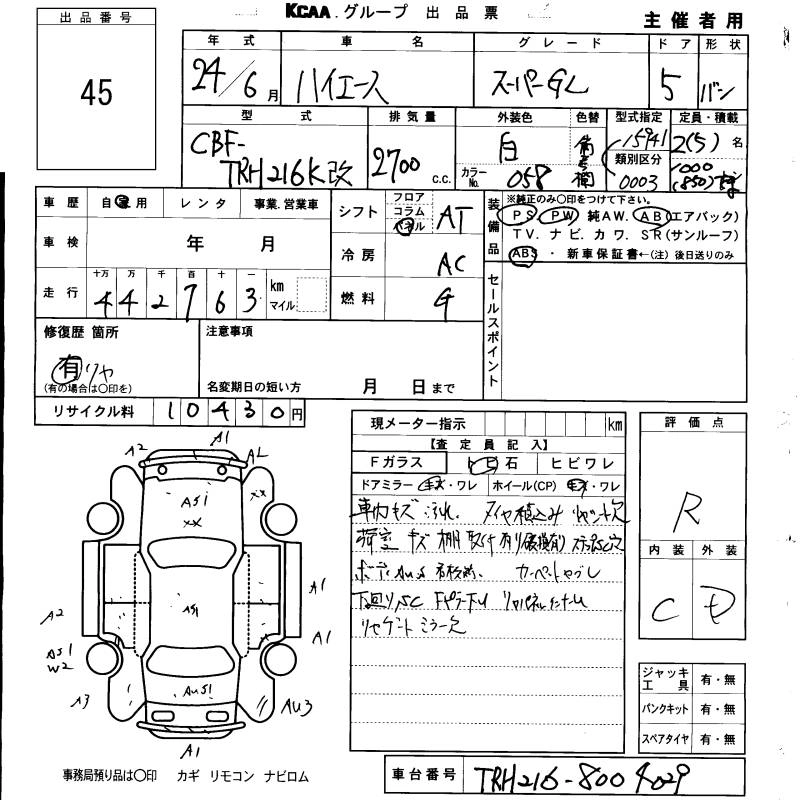 KCAA グループ 出品票
主催者用
出品番号
45
年式 車名 グレード ドア 形状
24/6月 ハイエース スーパーGL 5 バン
型式 排気量 外装色 色替 型式指定 定員・積載
CBF-
TRH216K改 2700 c.c. 白 カラーNo. 058 15941 2(5)名
類別区分
0003 1000
(850)
車歴 自家用 レンタ 事業.営業車
車検 年 月
走行 十万 万 千 百 十 一
4 4 2 7 6 3 km マイル
シフト フロア コラム パネル AT
冷房 AC
燃料 G
装備品 ※純正のみ○印をつけて下さい。
PS. PW. 純AW. AB(エアバック)
TV. ナビ. カワ. SR(サンルーフ)
ABS・新車保証書←(注)後日送りのみ
セールスポイント
修復歴 箇所
有 リヤ
(有の場合は○印を)
注意事項
名変期日の短い方 月 日まで
リサイクル料 10430円
現メーター指示 km
【査定員記入】
Fガラス トビ石 ヒビワレ
ドアミラー キズ・ワレ ホイール(CP) キズ・ワレ
車内キズ汚れ. タイヤ積込み
荷室 キズ 棚取付
ボディAUS
カーペットヤブレ
下回りSC
ミラー欠
評価点
R
内装 外装
C D
A1
A2
AL
AS1
XX
XX
A1
AS1
A2
A1
AS1
W2
A3
AUS1
AU3
A1
ジャッキ工具 有・無
パンクキット 有・無
スペアタイヤ 有・無
事務局預り品は○印 カギ リモコン ナビロム
車台番号 TRH216-8004029